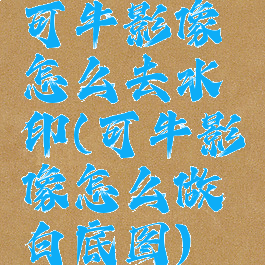 可牛影像
怎么去水
印(可牛影
像怎么做
白底图)